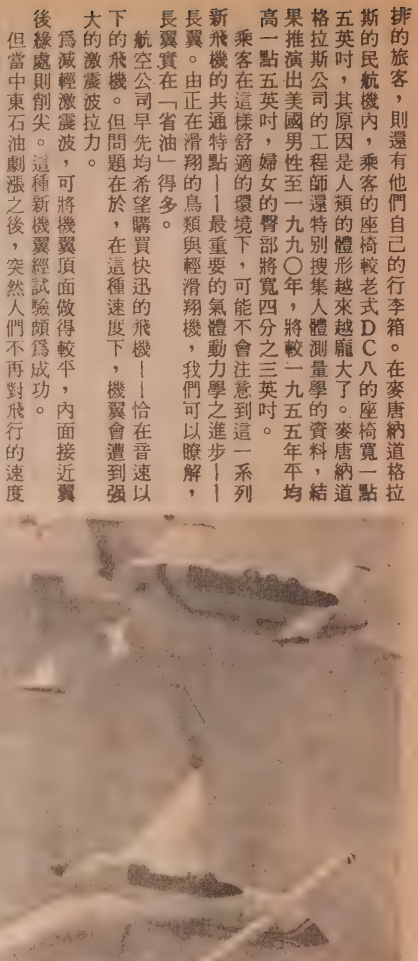 排的旅客，則還有他們自己的行李箱。在麥唐納道格拉
斯的民航機內，乘客的座椅較老式DC八的座椅寬一點
五英吋，其原因是人類的體形越來越龐大了。麥唐納道
格拉斯公司的工程師還特別搜集人體測量學的資料，結
果推演出美國男性至一九九〇年，將較一九五五年平均
高一點五英吋，婦女的臀部將寬四分之三英吋。
乘客在這樣舒適的環境下，可能不會注意到這一系列
新飛機的共通特點——最重要的氣體動力學之進步——
長翼。由正在滑翔的鳥類與輕滑翔機，我們可以瞭解，
長翼實在「省油」得多。
航空公司早先均希望購買快迅的飛機——恰在音速以
下的飛機。但問題在於，在這種速度下，機翼會遭到强
大的激震波拉力。
爲減輕激震波，可將機翼頂面做得較平，內面接近翼
後緣處則削尖。這種新機翼經試驗頗爲成功。
但當中東石油劇漲之後，突然人們不再對飛行的速度